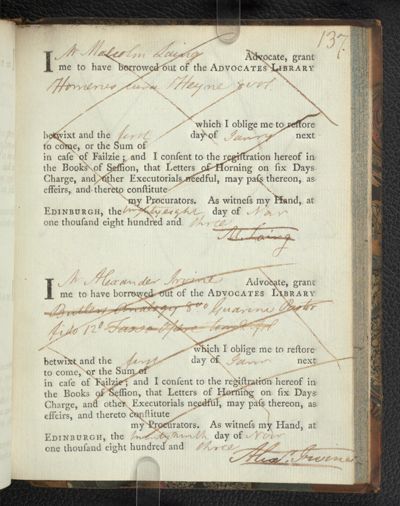 137.
I Mr Malcolm Laing Advocate, grant
me to have borrowed out of the ADVOCATES LIBRARY
Homerus Heyne 8 vol
which I oblige me to reſtore
betwixt and the first day of Janry next
to come, or the Sum of
in caſe of Failzie; and I conſent to the regiſtration hereof in
the Books of Seſſion, that Letters of Horning on ſix Days
Charge, and other Executorials needful, may paſs thereon, as
effeirs, and thereto conſtitute
my Procurators. As witneſs my Hand, at
EDINBURGH, the twentyeight day of Novr
one thouſand eight hundred and three
M. Laing
I Mr Alexander Irvine Advocate, grant
me to have borrowed out of the ADVOCATES LIBRARY
8vo Guarini Pastor
fido 12o Tasso
which I oblige me to reſtore
betwixt and the first day of Janr next
to come, or the Sum of
in caſe of Failzie; and I conſent to the regiſtration hereof in
the Books of Seſſion, that Letters of Horning on ſix Days
Charge, and other Executorials needful, may paſs thereon, as
effeirs, and thereto conſtitute
my Procurators. As witneſs my Hand, at
EDINBURGH, the day of Novr
one thouſand eight hundred and three
Alexr. Irvine